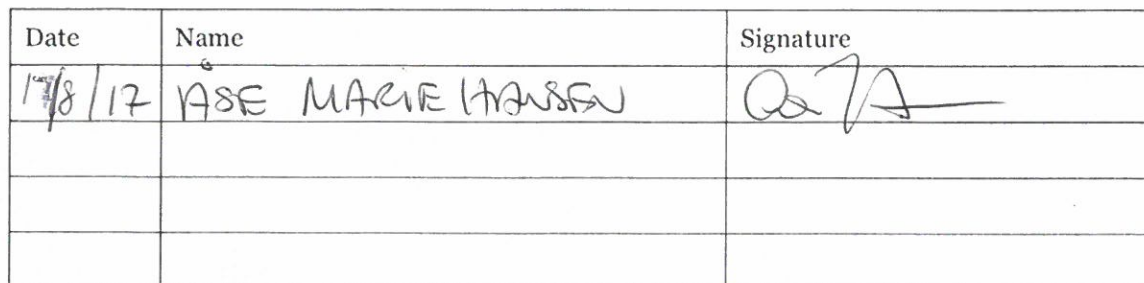 Date Name Signature
17/8/17 ÅSE MARIE HANSEN